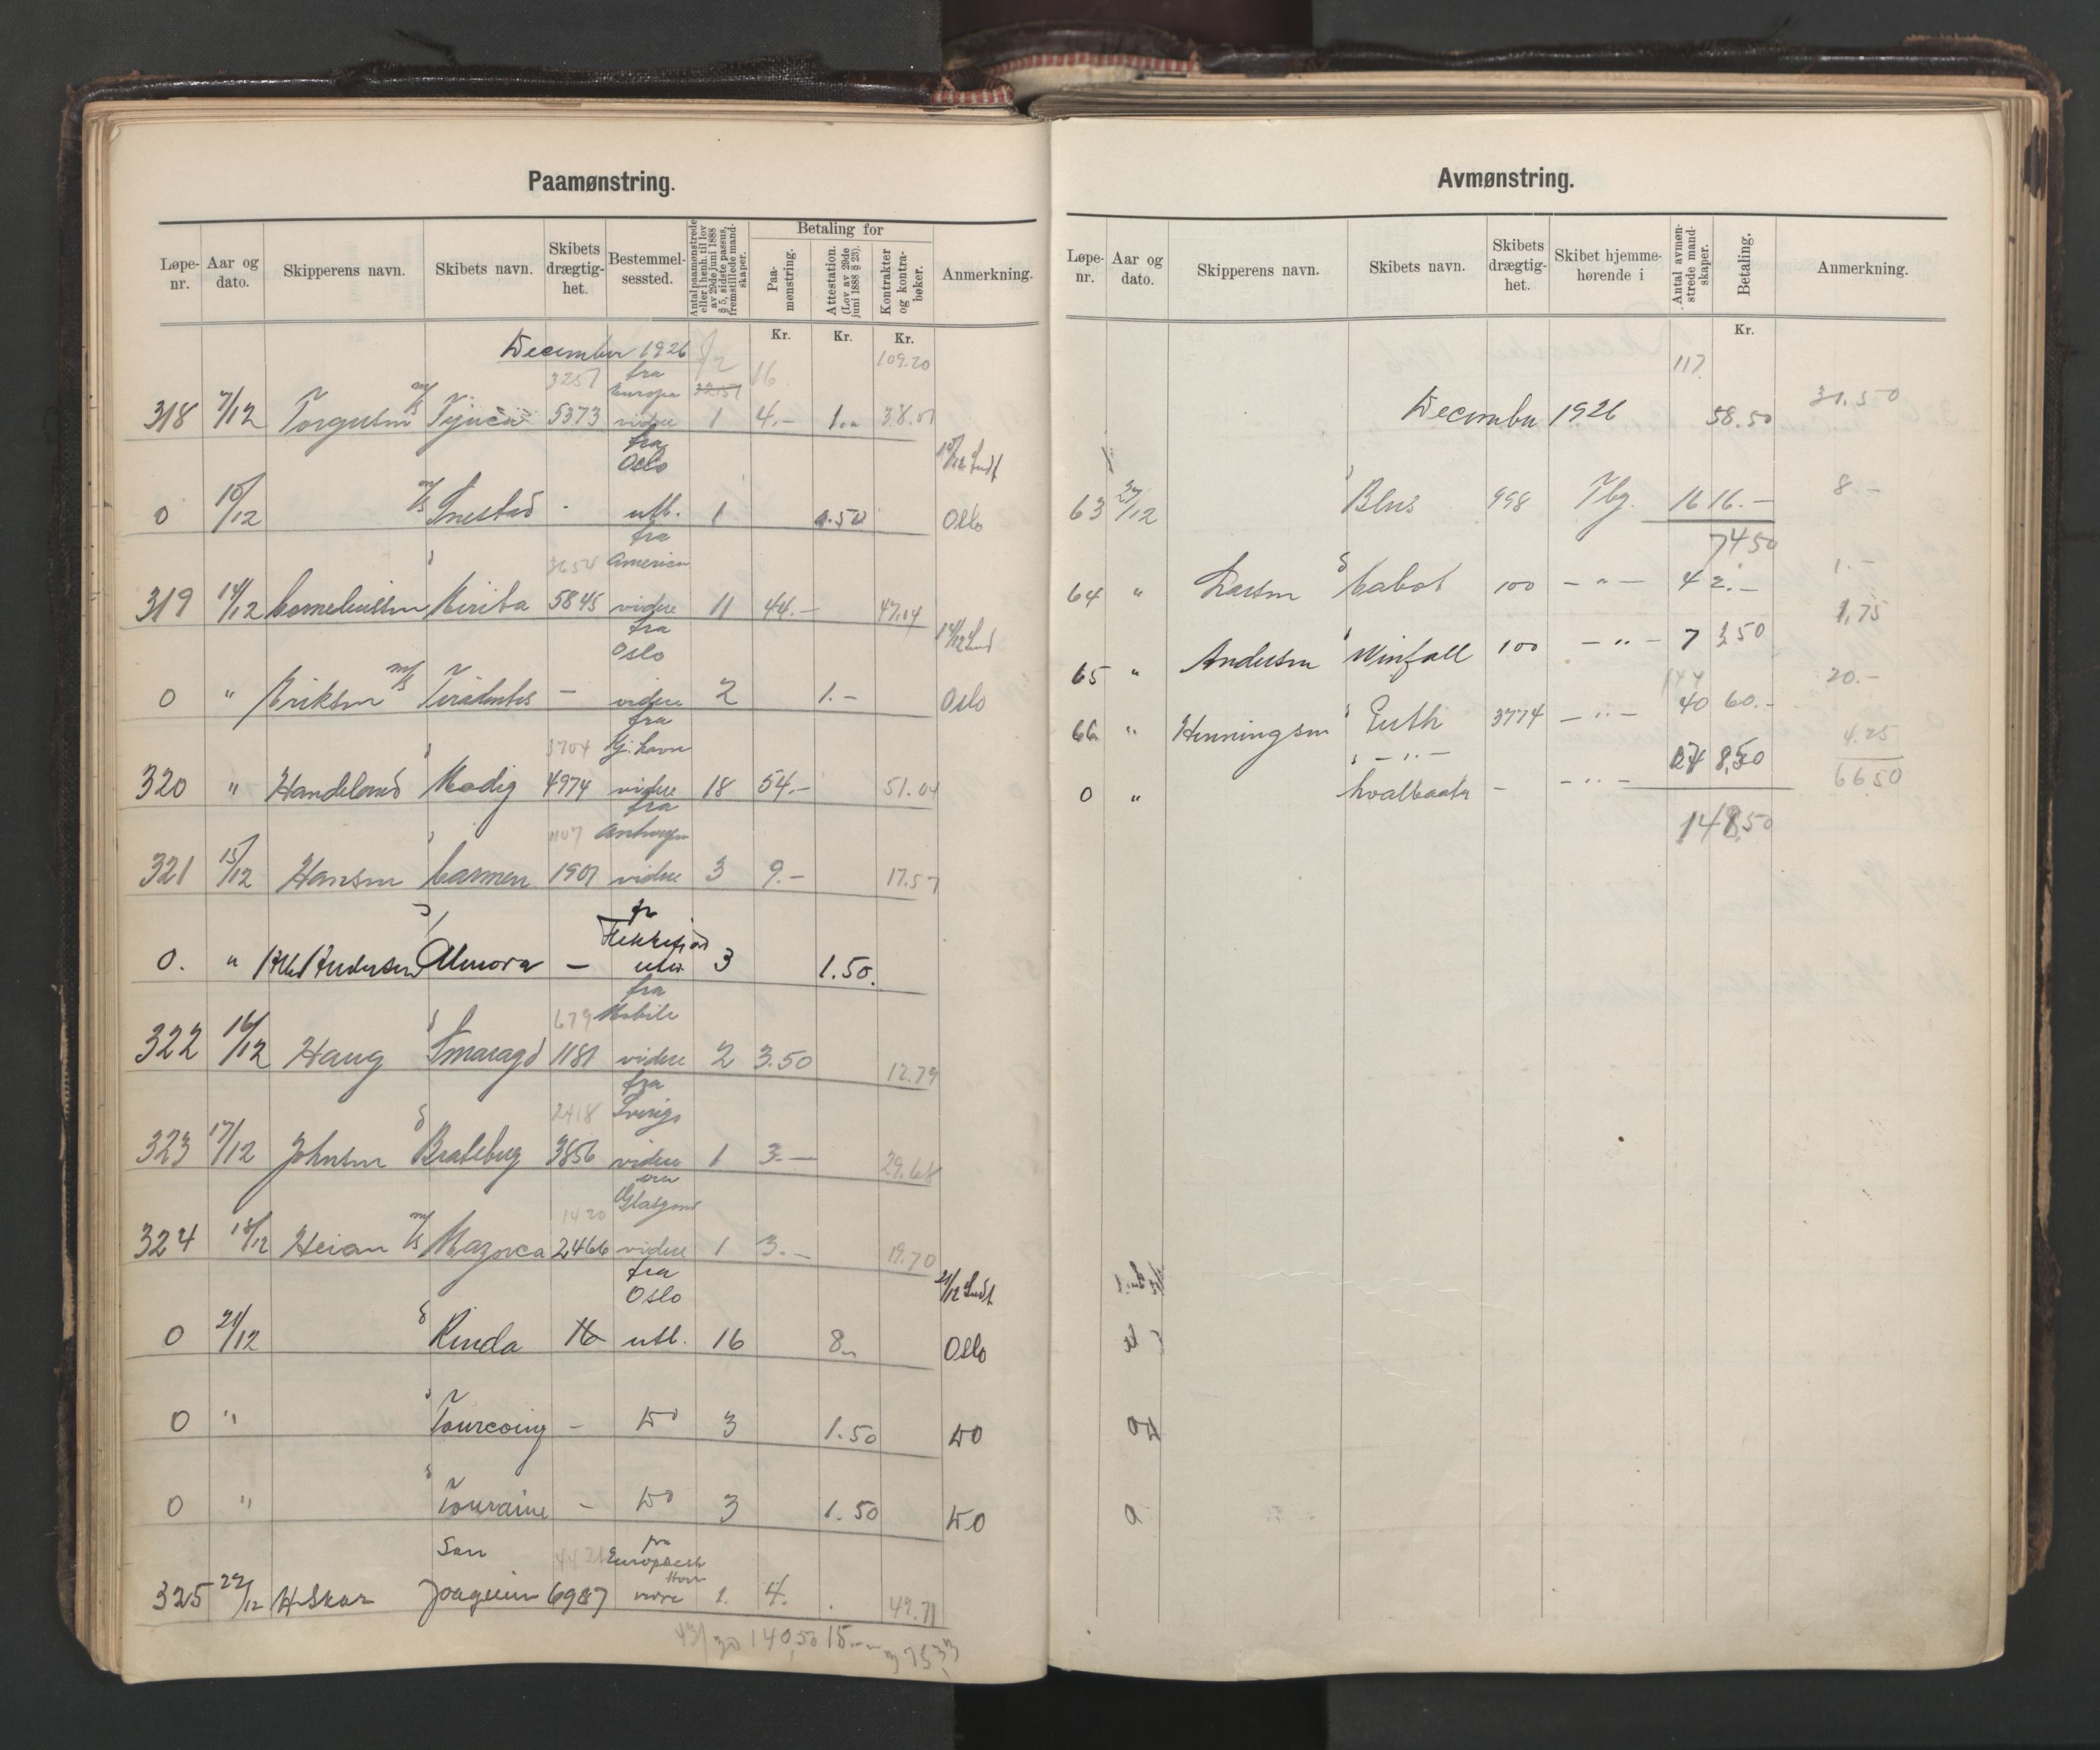 Paamønstring.
Løpe-nr. Aar og dato. Skipperens navn. Skibets navn. Skibets drægtig-het. Bestemmel-sessted. Antal paamønstrede eller i henh. til lov av 29de juni 1888 § 5, sidste passus, fremstillede mand-skaper. Betaling for Paa-mønstring. Attestation. (Lov av 29de juni 1888 § 23). Kontrakter og kontra-bøker. Anmerkning.
Kr. Kr. Kr.
December 1926
16. 109.20
3257 fra Europa
318 7/12 m/s 5373 videre 1 4.- 1.-
fra Oslo
0 10/12 m/s utl. 1 1.50 Oslo
fra America
319 14/12 5845 videre 11 44.- 47.04
fra Oslo
0 " Eriksen m/s Tiradentes - videre 2 1.- Oslo
fra
3704
320 " Handeland Modig 4974 videre 18 54.- 51.04
fra
1107
321 15/12 Hansen Carmen 1907 videre 3 9.- 17.57
fra
0. " Andersen Almora - 3 1.50.
fra
679 Mobile
322 16/12 Haug Smaragd 1181 videre 2 3.50 12.79
fra
2418 Sverige
323 17/12 Johnsen Brateberg 3856 videre 1 3.- 29.68
1420 Glasgow
324 18/12 Heian m/s Mazorca 2466 videre 1 3.- 19.70
fra Oslo 21/12
0 21/12 s Rinda utl. 16 8.- Oslo
0 " s Tourcoing - Do 3 1.50 Do
0 " s Touraine - Do 3 1.50 Do
San fra
325 22/12 H Skar Joaquin 6987 1. 4. 49.71
140,50 15.-
Avmønstring.
Løpe-nr. Aar og dato. Skipperens navn. Skibets navn. Skibets drægtig-het. Skibet hjemme-hørende i Antal avmøn-strede mand-skaper. Betaling. Anmerkning.
Kr.
117
December 1926 58.50 31.50
63 s 998 Tbg. 16 16.- 8.-
74 50
64 " Larsen s Cabot 100 - " - 4 2.- 1.-
65 " Andersen s Minfall 100 - " - 7 3,50 1,75
66 " Henningsen s 3774 - " - 40 60.- 20.-
s - " - 8,50 4.25
0 " hvalbaater - - " - 66 50
148,50